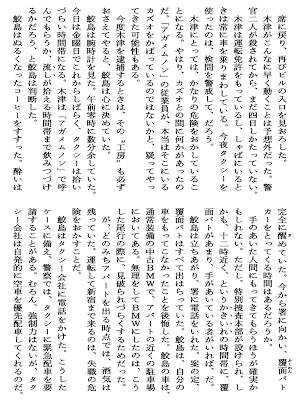 席に戻り、再びビルの入口を見おろした。
木津がこんなに早く動くことは予想外だった。警
官二人が殺されてから、まだ四日しかたっていない。
木津は運転免許をもっている。しゃばにいると
きは常に車を乗りまわしている。今夜タクシーを
使ったのは、検問を警戒して、だろう。
木津にとっては、かなりの危険をおかしているこ
とになる。やはり、カズオとの間に何かがあったの
だ。「アガメムノン」の従業員が、本当はそこにいる
カズオをかばっているのではないかと、疑ってやっ
てきた可能性もある。
今度木津を逮捕するときは、その〝工房〟も必ず
おさえてやると、鮫島は心に決めていた。
鮫島は腕時計を見た。午前零時に数分余していた。
今日は金曜日でこれからしばらく、タクシーは拾い
づらい時間帯になる。木津は、「アガメムノン」で呼
んでもらうか、流しが拾える時間帯まで飲みつづけ
るかだろう、と鮫島は判断した。
鮫島はぬるくなったコーヒーをすすった。酔いは
完全に醒めていた。今から署に向かい、覆面パト
カーをとってくる時間はあるだろうか。
手のあいた人間にもってきてもらうほうが確実か
もしれない。ただし、特別捜査本部が設けられ、し
かも、十二時近く、というかきいれの時間帯に、覆
面パトがあまり、手があいている者がいれば、だ。
鮫島は立ちあがり、署に電話をいれた。案の定、
覆面パトはすべて出はらっていた。鮫島は、自分の
車をもってこなかったことを後悔した。鮫島の車は、
通常装備の中古BMWで、アパートの近くの駐車場
においてある。無理をしてBMWにしたのは、こう
した尾行の際に、見破られづらくするためだった。
が、どのみちアパートを出る時点では、酒気は
残っていた。運転して新宿まで来るのは、失職の危
険をおかすことだ。
鮫島はタクシー会社に電話をかけた。こうした
ケースに備え、警察では、タクシーに緊急配車を要
請することがある。むろん、強制力はないが、タク
シー会社は自発的に空車を優先配車してくれるのだ。